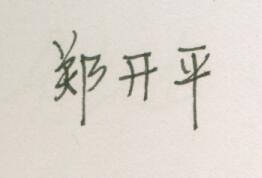 郑开平